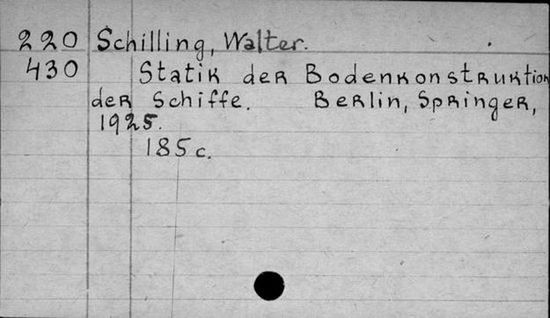 220 Schilling, Walter.
430 Statik der Bodenkonstruktion
der Schiffe. Berlin, Springer,
1925.
185 c.